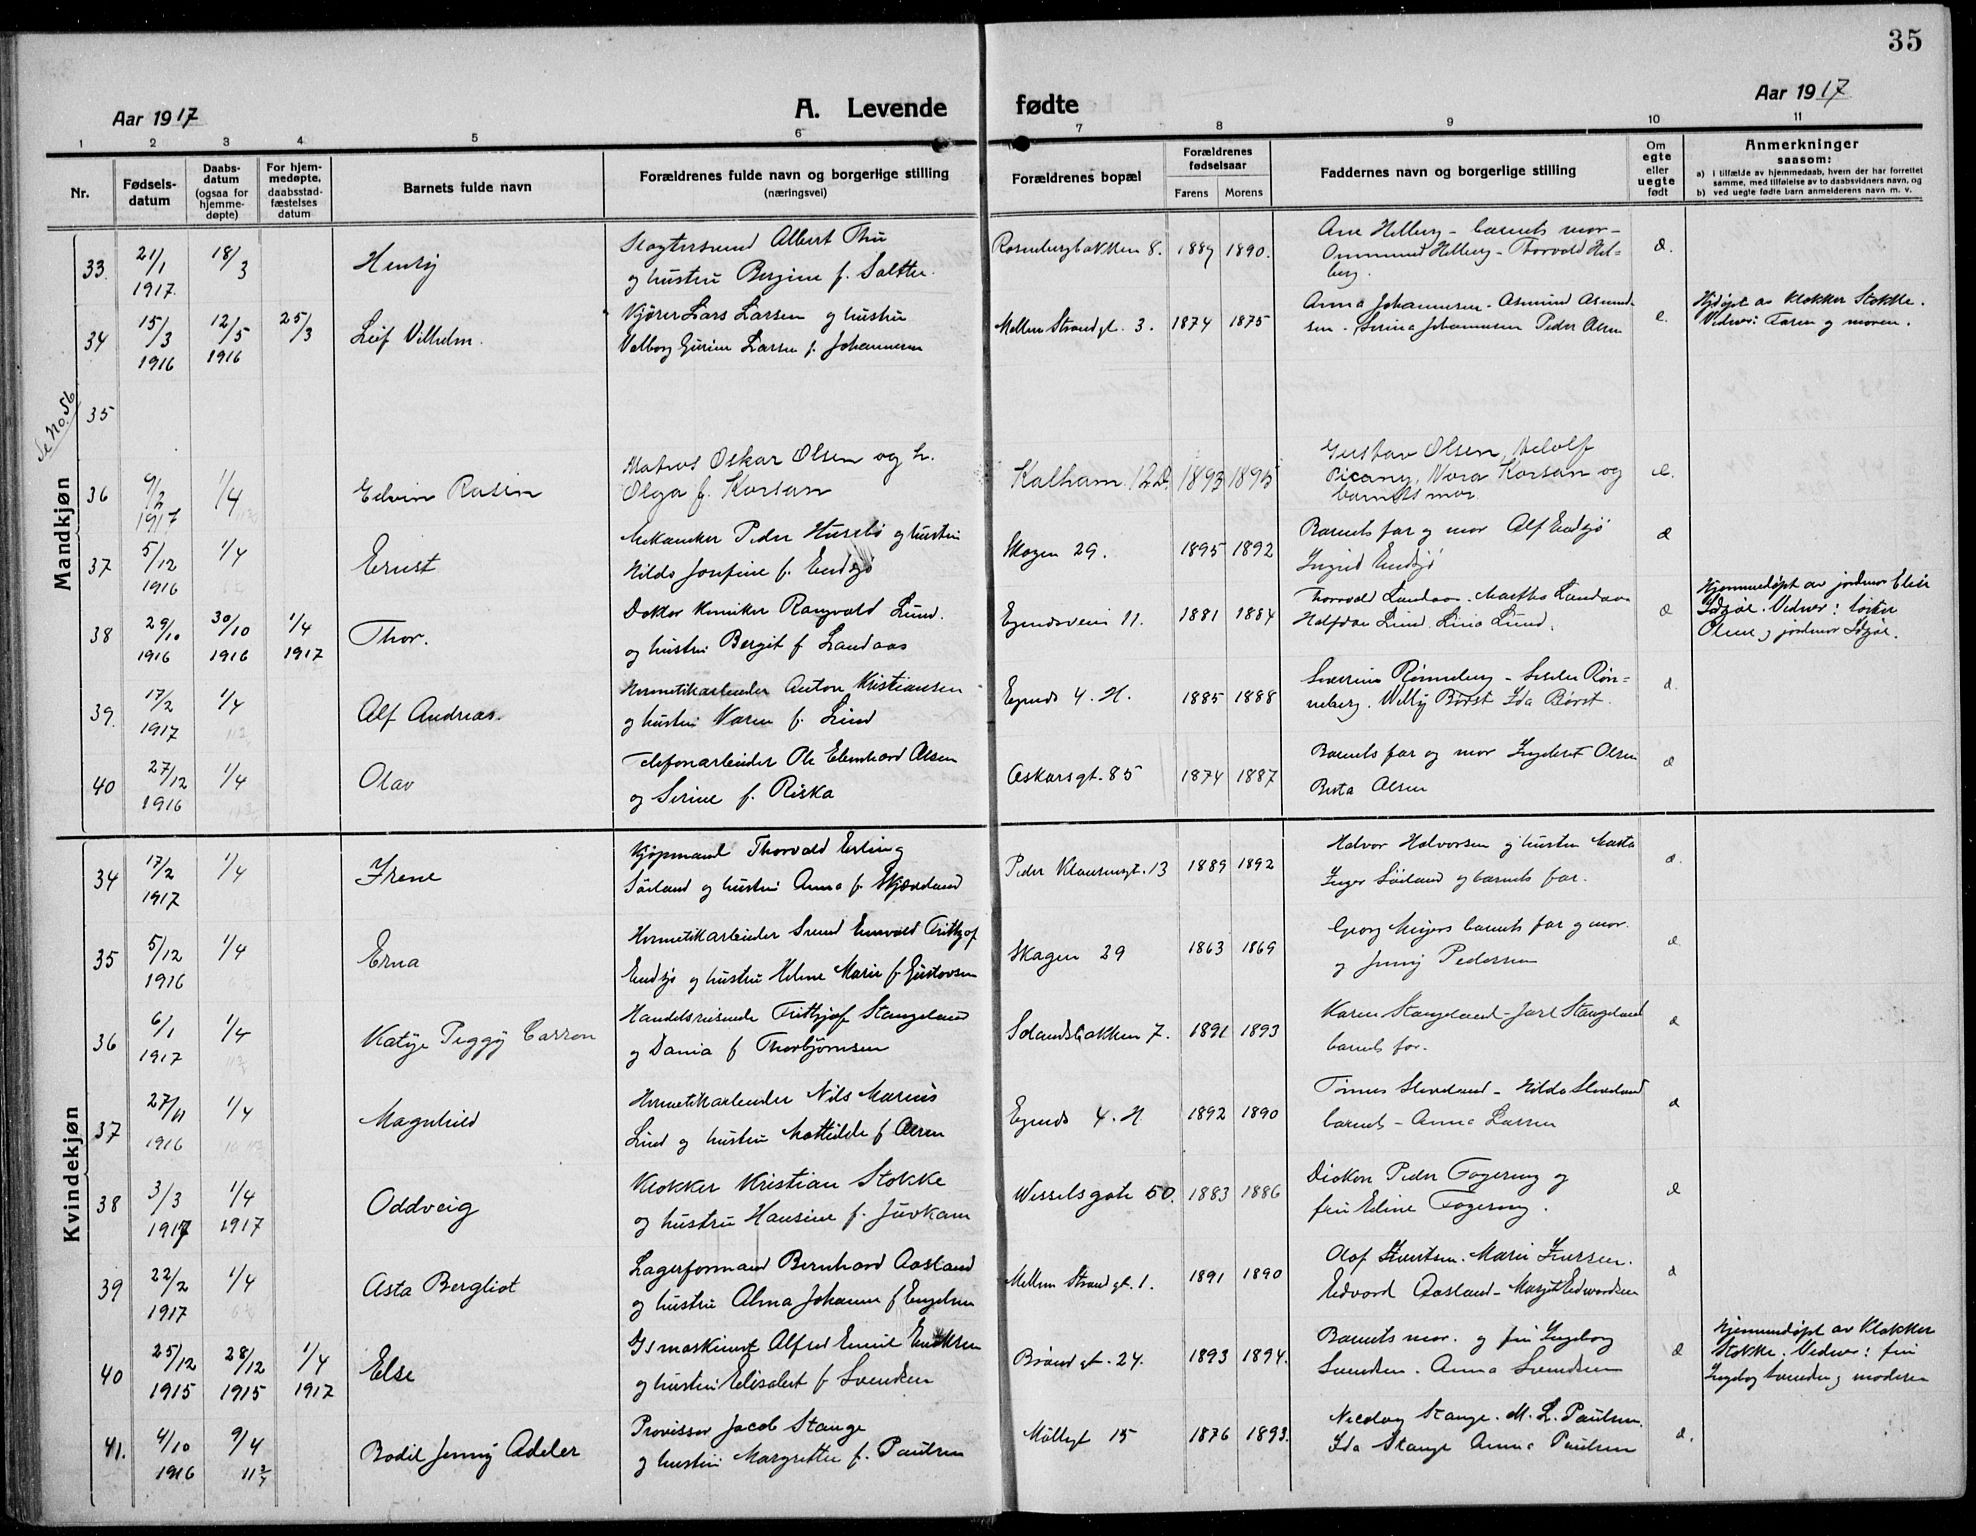 35
Aar 1917 A. Levende fødte Aar 1917
1 2 3 4 5 6 7 8 9 10 11
Nr.
Fødselsdatum
Daabsdatum (ogsaa for hjemmedøpte)
For hjemmedøpte, daabsstadfæstelses datum
Barnets fulde navn
Forældrenes fulde navn og borgerlige stilling
(næringsvei)
Forældrenes bopæl
Forældrenes fødselsaar
Farens Morens
Faddernes navn og borgerlige stilling
Om egte eller uegte født
Anmerkninger
saasom:
a) i tilfælde av hjemmedaab, hvem der har forrettet
samme, med tilføielse av to daabsvidners navn, og
b) ved uegte fødte barn anmelderens navn m. v.
Mandkjøn
33. 21/1 1917. 18/3 Henry
Slagtersvend Albert Thu
og hustru Bergine f. Salthe.
Rosenbergbakken 8. 1889 1890.
Ane Helberg - barnets mor -
Ommund Helberg - Thorvald Helberg.
e.
34 15/3 1916 12/5 1916 25/3 Leif Vilhelm.
Kjører Lars Larsen og hustru
Valborg Gurine Larsen f. Johannesen
Mellem Strandgt. 3. 1874 1875
Anna Johannesen - Asmund Asmundsen - Serina Johannesen Peder Olsen
e.
Hjdøpt av klokker Stokke.
Vidner: Faren og moren.
Se No. 56
35
36 9/2 1917 1/4 Edvin Rasin
Matros Oskar Olsen og h.
Olga f. Korsan
Kalham. 12 D. 1893 1895
Gustav Olsen, Adolf
Picany, Nora Korsan og
barnets mor
e.
37 5/12 1916 1/4 Ernst
Mekaniker Peder Husebø og hustru
Hilda Josefine f. Endsjø
Skagen 29. 1895 1892
Barnets far og mor Alf Endsjø
Ingrid Endsjø
e
38 29/10 1916 30/10 1916 1/4 1917 Thor.
Doktor Kemiker Rangvald Lund.
og hustru Bergit f Landaas
Egendsveien 11. 1881 1884
Thorvald Landaas. Martha Landaas
Halfdan Lund. Lina Lund.
e
Hjemmedøpt av jordmor Elise
Idsøe. Vidner: søster
Oline og jordmor Idsøe.
39. 17/2 1917 1/4 Alf Andreas.
Hermetikarbeider Anton Kristiansen
og hustru Karen f. Lind
Egends 4. H. 1885 1888
Severine Rønneberg - Sselen Rønneberg. Willy Børst Ida Børst.
e.
40 27/12 1916 1/4 Olav
Telefonarbeider Ole Edenhard Olsen
og Serine f. Riska
Oskarsgt. 85 1874 1887
Barnets far og mor Ingeborg Olsen
Berta Olsen
e
Kvindekjøn
34 17/2 1917 1/4 Irene
Kjøpmand Thorvald Erling
Sørland og hustru Anna f. Skjæveland
Peder Klausensgt. 13 1889 1892
Halvor Halvorsen og hustru Marta
Inger Sørland og barnets far.
e.
35 5/12 1916 1/4 Erna
Hermetikarbeider Svend Enevald Frithjof
Endsjø og hustru Helene Marie f Gustavsen
Skagen 29 1863 1869
Georg Meyers barnets far og mor.
og Jenny Pedersen
e
36 6/1 1917 1/4 Katye Peggy Carson
Handelsreisende Frithjof Stangeland
og Dania f Thorbjørnsen
Solandsbakken 7. 1891 1893
Karen Stangeland - Jarl Stangeland
barnets far.
e
37 27/11 1916 1/4 Magnhild
Hermetikarbeider Nils Marius
Lind og hustru Mathilde f Olsen
Egends 4. H 1892 1890
Tomas Skeveland - Hilda Skeveland
barnets - Anna Larsen
e
38 3/3 1917 1/4 1917 Oddveig
Klokker Kristian Stokke
og hustru Hansine f. Juvkam
Wesselsgate 50. 1883 1886
Diakon Peder Fogering og
fru Eline Fogering.
e
39 22/2 1917 1/4 Asta Bergliot
Lagerformand Bernhard Aasland
og hustru Alma Johanne f Engelsen
Mellem Strandgt. 1. 1891 1890
Olaf Sivertsen. Marie Iversen.
Edvard Aasland - Margit Edwardsen
e
40 25/12 1915 28/12 1915 1/4 1917 Else
Ismaskinist Alfred Emil Eriksen
og hustru Elisabet f Svendsen
Brandgt. 24. 1893 1894.
Barnets mor. og fru Ingeborg
Svendsen. Anna Svendsen
e
Hjemmedøpt av klokker
Stokke. Vidner: fru
Ingeborg Svendsen og moderen
41. 4/10 1916 9/4 Bodil Jenny Adeler
Provisor Jacob Stange
og hustru Margrethe f. Paulsen
Møllegt 15 1876 1893.
Nicolay Stange. M. L. Paulsen.
Ida Stange Anna Paulsen
e.